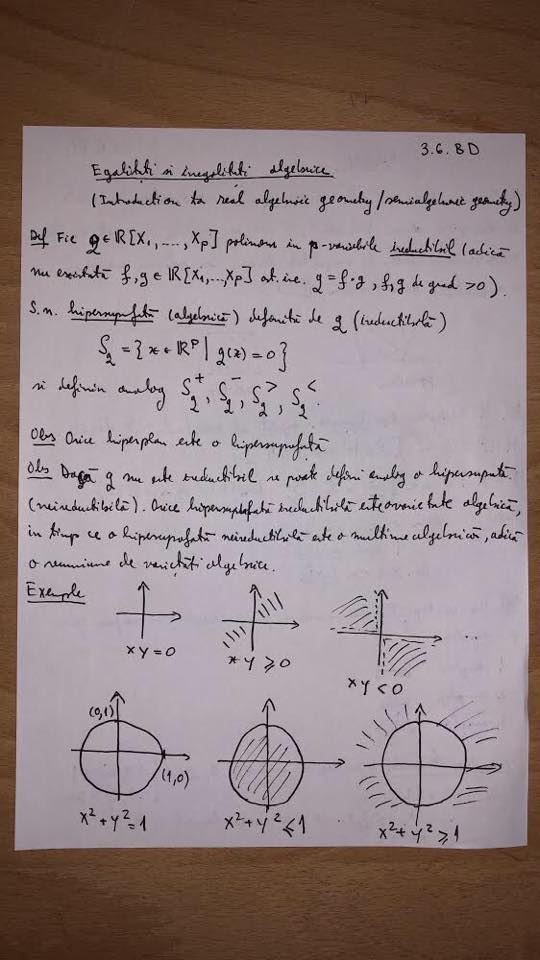 3.6. BD
Egalități si inegalități algebrice
(Introduction to real algebraic geometry/semialgebraic geometry)
Def Fie g ∈ ℝ[X₁, ..., Xp] polinom in p-variabile ireductibil (adică
nu existată f, g ∈ ℝ[X₁,...,Xp] g = f·g, f, g de grad > 0).
S.n. hipersuprafată (algebrică) definită de g (ireductibilă)
S_g = {x ∈ ℝᵖ | g(x) = 0}
si definim analog S_g⁺, S_g⁻, S_g^>, S_g^<.
Obs Orice hiperplan este o hipersuprafată
Obs Dacă g nu este ireductibil se poate defini analog o
(neireductibilă). Orice hipersuprafată ireductibilă este o varietate algebrică,
in timp ce o hipersuprafată neireductibilă este o multime algebrică, adică
o reuniune de varietăți algebrice.
Exemple
xy = 0
xy ≥ 0
xy < 0
...
(0,1)
(1,0)
x² + y² = 1
x² + y² ≤ 1
x² + y² ≥ 1